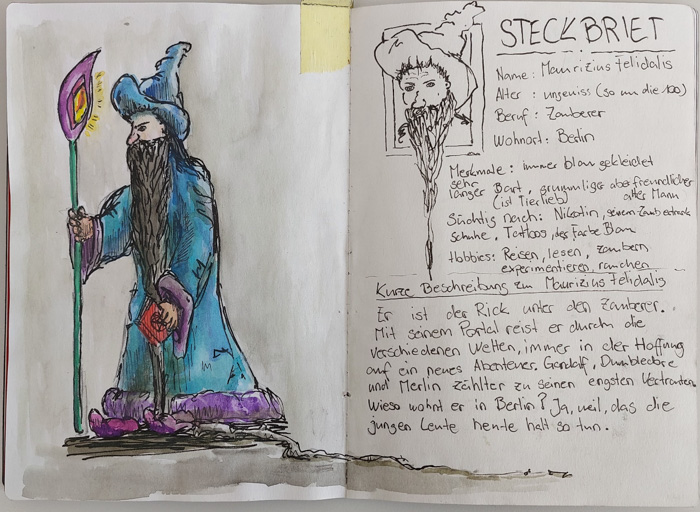 STECKBRIEF
Name: Maurizius Felidalis
Alter: ungewiss (so um die 100)
Beruf: Zauberer
Wohnort: Berlin
Merkmale: immer blau gekleidet
sehr langer Bart, grummliger aber freundlicher
(ist Tierlieb) alter Mann
Süchtig nach: Nikotin, seinem Zaubertrank
Schuhe, Tattoos, der Farbe Blau
Hobbies: Reisen, lesen, zaubern
experimentieren, rauchen
Kurze Beschreibung zum Maurizius Felidalis
Er ist der Rick unter den Zauberer.
Mit seinem Portal reist er durch die
verschiedenen Welten, immer in der Hoffnung
auf ein neues Abenteuer. Gandalf, Dumbledore
und Merlin zählt er zu seinen engsten Vertrauten.
Wieso wohnt er in Berlin? Ja, weil, das die
jungen Leute heute halt so tun.